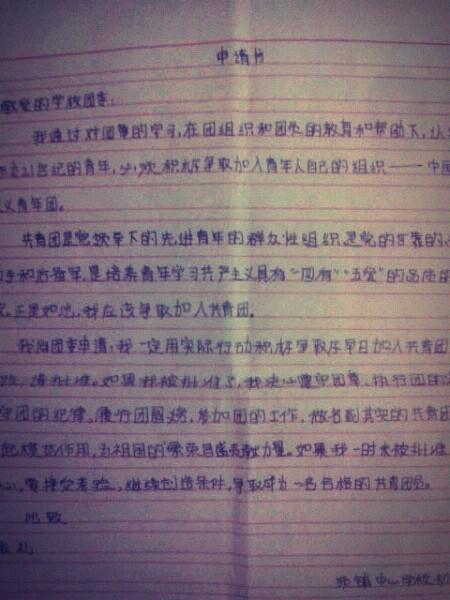 申请书
敬爱的学校团委:
我通过对团章的学习,在团组织和团员的教育和帮助下,认
21世纪的青年,必须积极争取加入青年人自己的组织——中国
义青年团。
共青团是党领导下的先进青年的群众性组织,是党的可靠的
手和后备军,是培养青年学习共产主义具有“四有”“五爱”的品质的
正是如此,我应该争取加入共青团。
我向团委申请:我一定用实际行动积极争取尽早日加入共青团
请批准。如果我被批准了,我决心遵守团章,执行团的
守团的纪律,履行团员义务,参加团的工作,做名副其实的共青团
起模范作用,为祖国的繁荣昌盛贡献力量。如果我一时未被批准
心,要接受考验,继续创造条件,争取成为一名合格的共青团员。
此致
敬礼
中心学校初